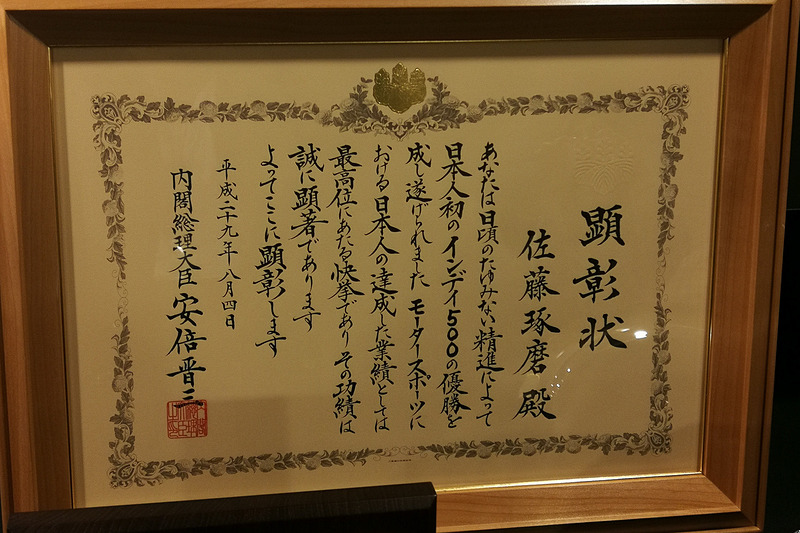 顕彰状
佐藤琢磨殿
あなたは日頃のたゆみない精進によって
日本人初のインディ500の優勝を
成し遂げられました モータースポーツに
おける日本人の達成した業績としては
最高位にあたる快挙であり その功績は
誠に顕著であります
よってここに顕彰します
平成二十九年八月四日
内閣総理大臣 安倍晋三